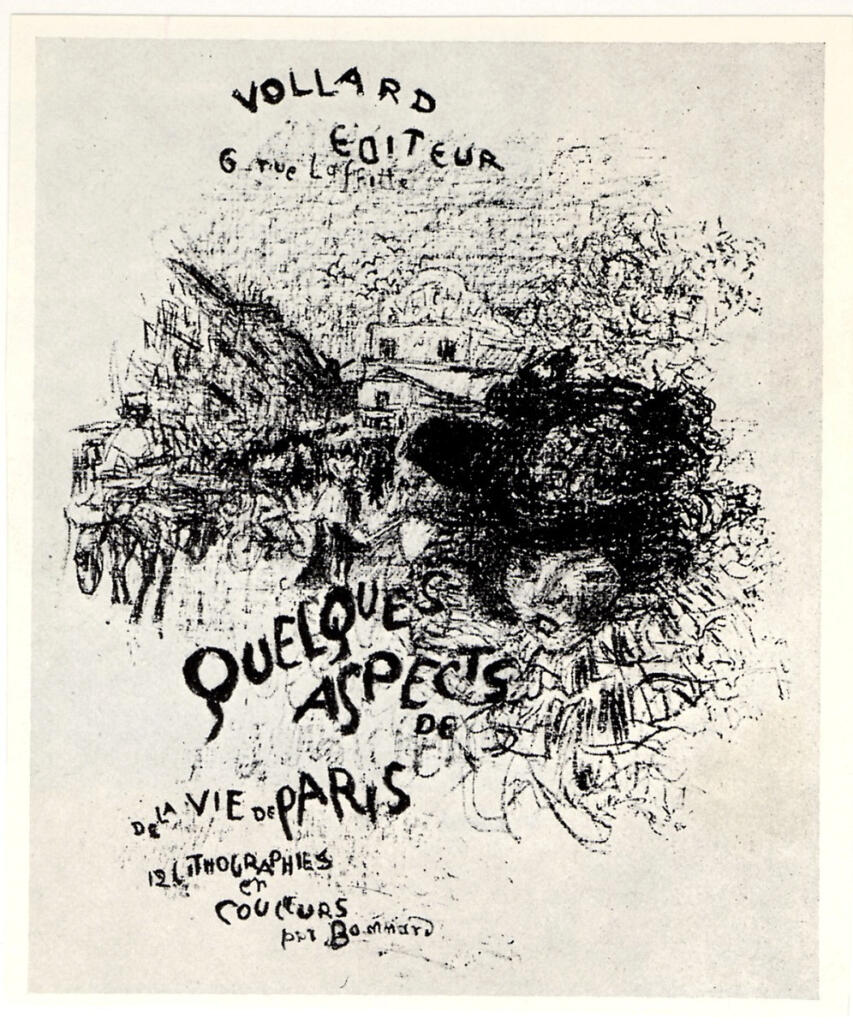 VOLLARD
EDITEUR
6 rue Laffitte
QUELQUES
ASPECTS
DE
DE LA VIE DE PARIS
12 LITHOGRAPHIES
en
COULEURS
par Bonnard